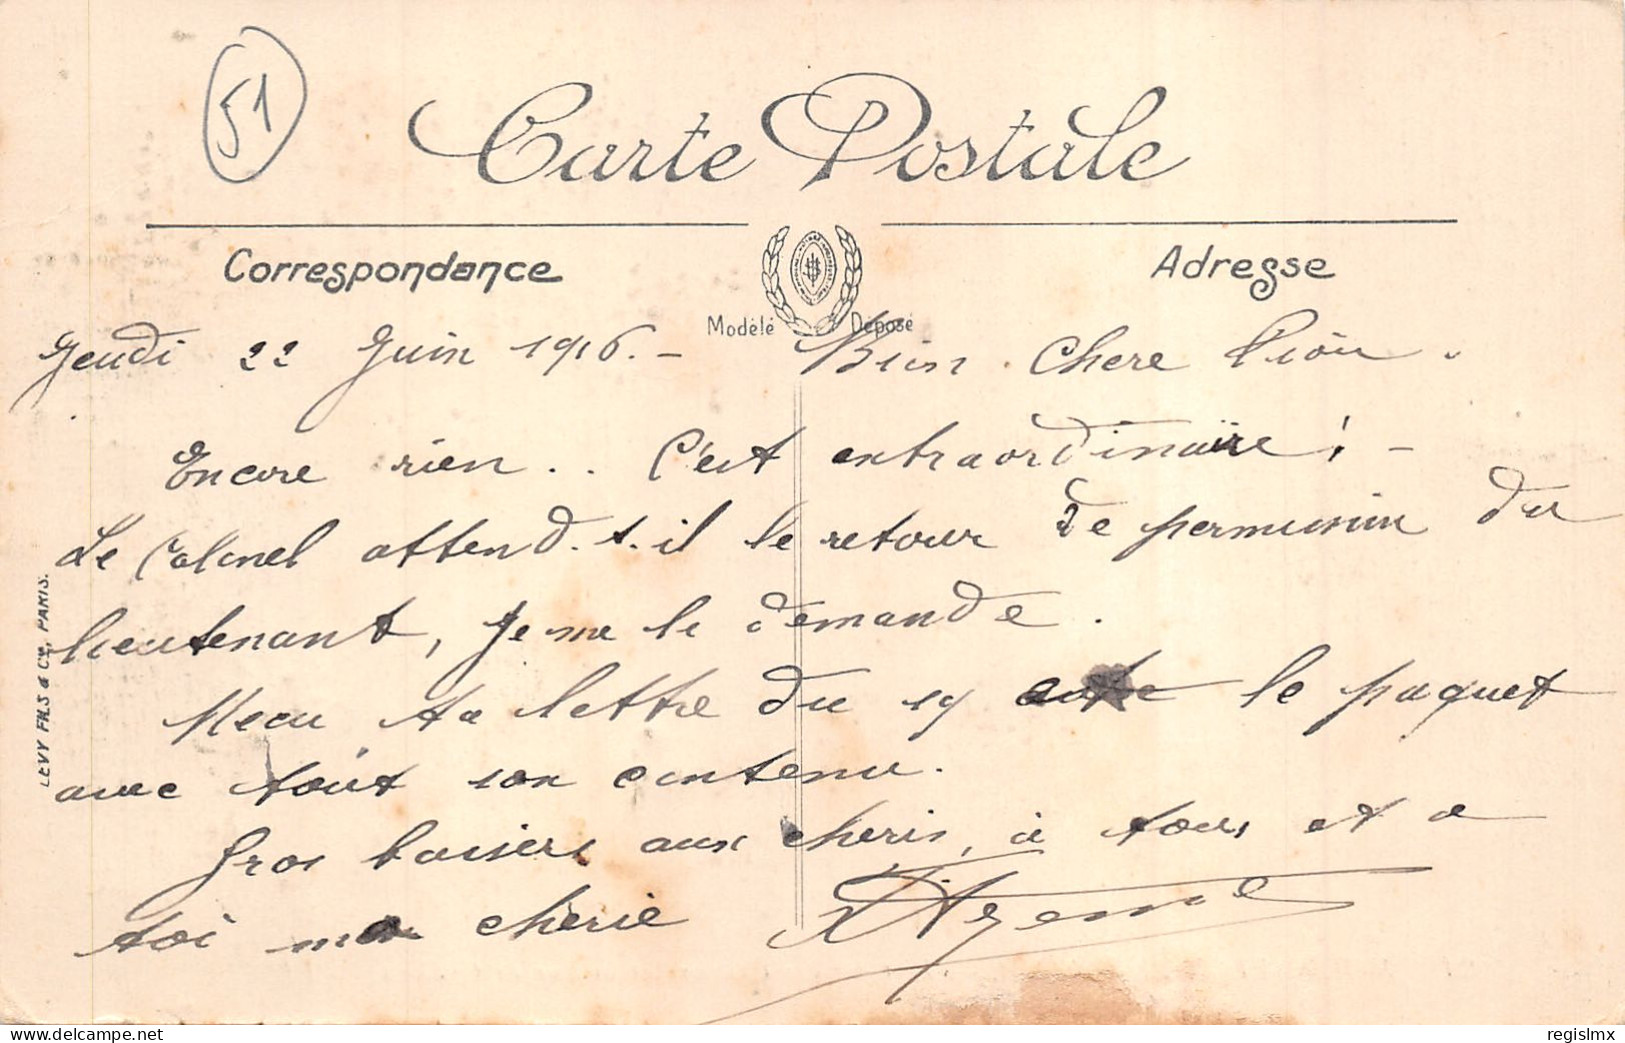 51
Carte Postale
Correspondance
Adresse
Modèle Déposé
Jeudi 22 Juin 1916. - Bien Chere
Encore rien .. C'est extraordinaire ! -
Le Colonel attend. t. il le retour de permission du
lieutenant, je me le demande.
Recu ta lettre du 19 le paquet
avec tout son contenu.
Gros baisers aux cheris, à tous et a
toi ma cherie
LEVY FILS & Cie, PARIS.
delcampe.net
regislmx